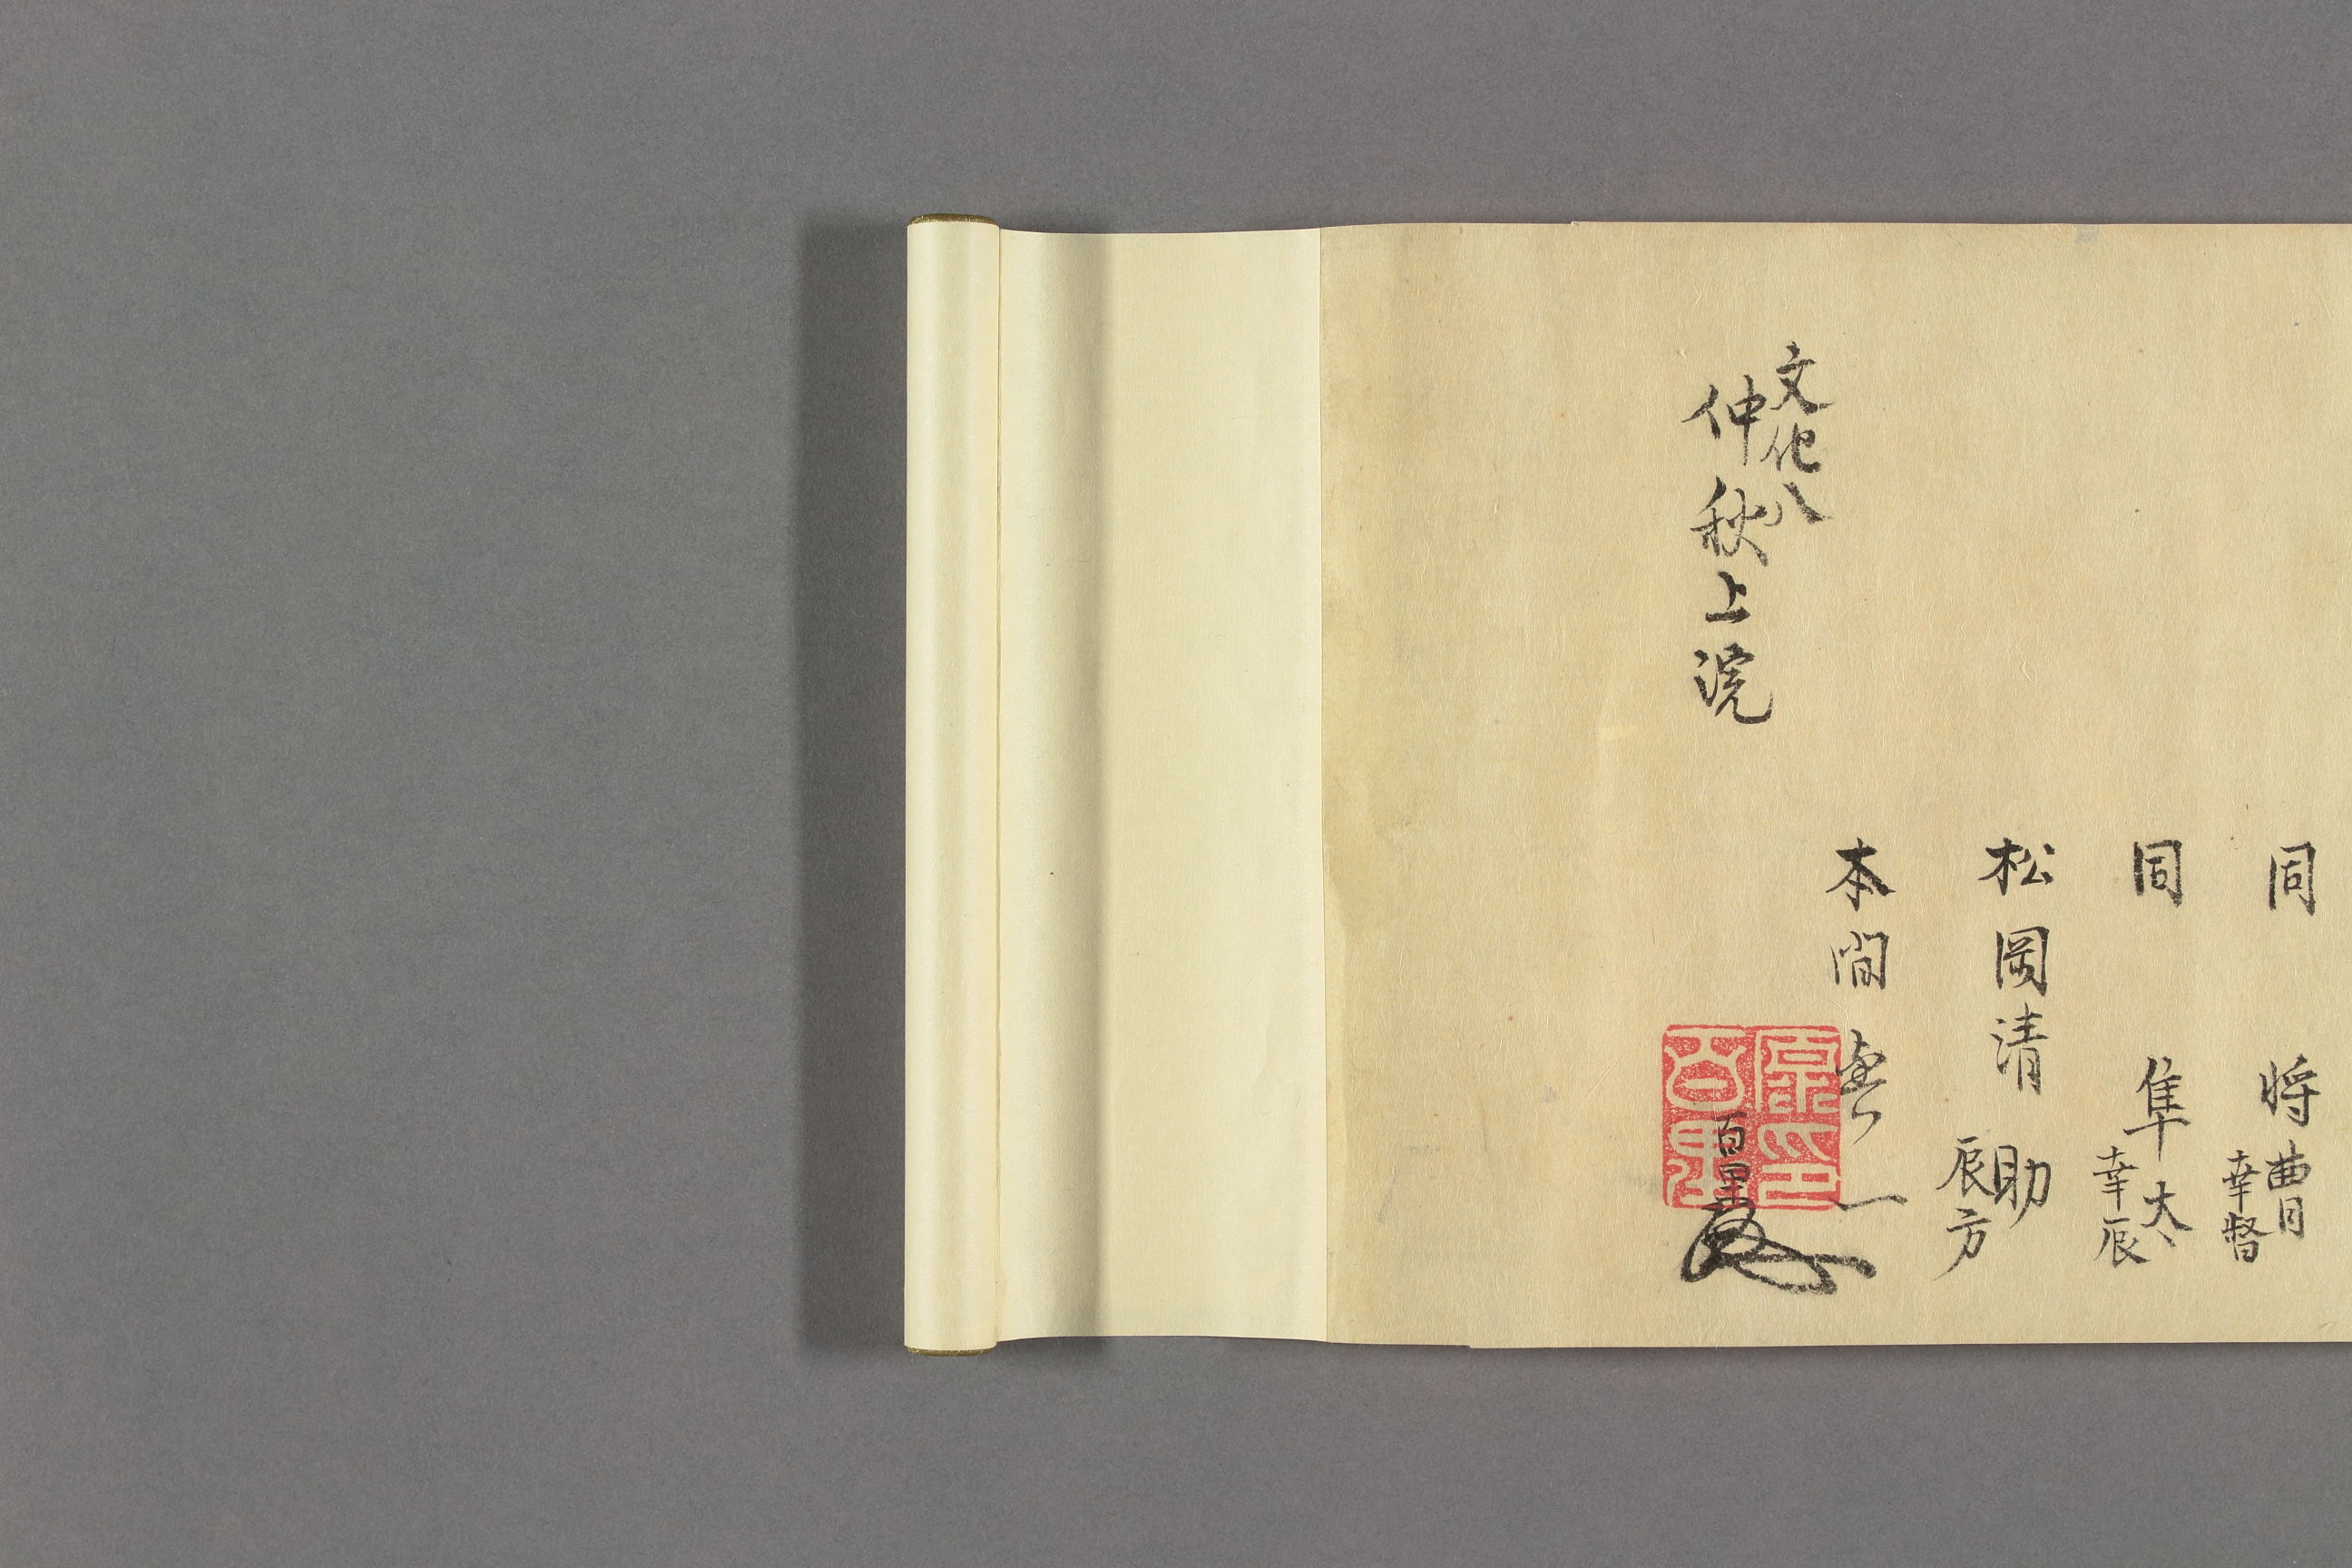 同 将曹
幸督
同 隼太
幸辰
松岡清助
辰方
本間
百里
文化八
仲秋上浣